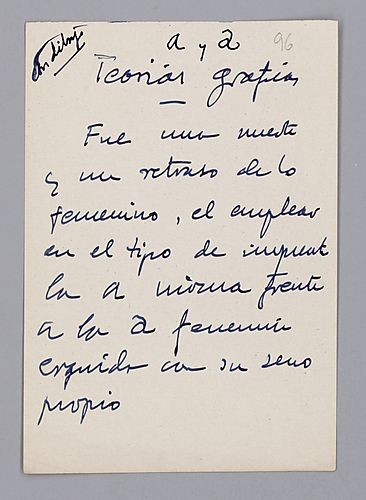 con dibujo
a y a
96
Teorías grafías
Fue una muerte
y un retraso de lo
femenino, el emplear
en el tipo de imprent
la a misma frente
a la a femenin
erguida con su seno
propio